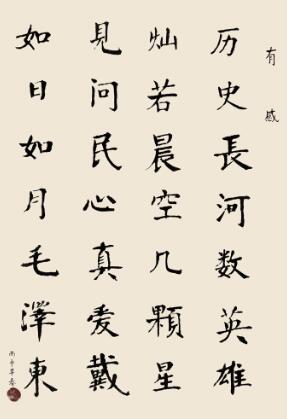 有感
历史長河数英雄
灿若晨空几顆星
見问民心真爱戴
如日如月毛澤東